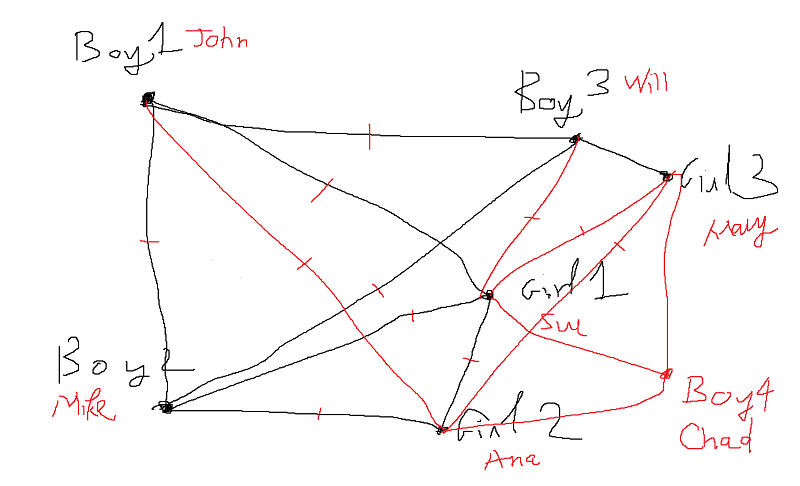 Boy 1 John
Boy 3 Will
Girl 3
Mary
Girl 1
Sue
Boy 2
Mike
Girl 2
Ana
Boy 4
Chad